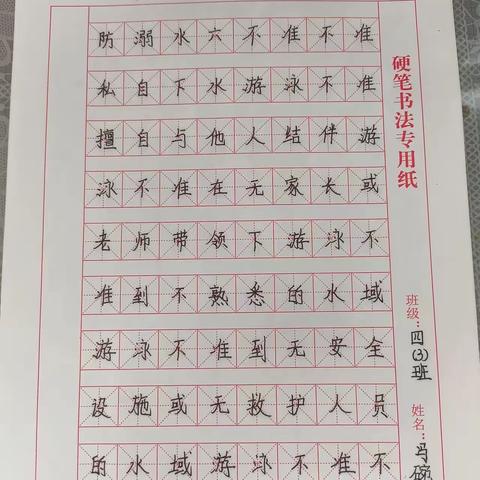 防溺水六不准不准
私自下水游泳不准
擅自与他人结伴游
泳不准在无家长或
老师带领下游泳不
准到不熟悉的水域
游泳不准到无安全
设施或无救护人员
的水域游泳不准不
硬笔书法专用纸
班级：四(3)班
姓名：马